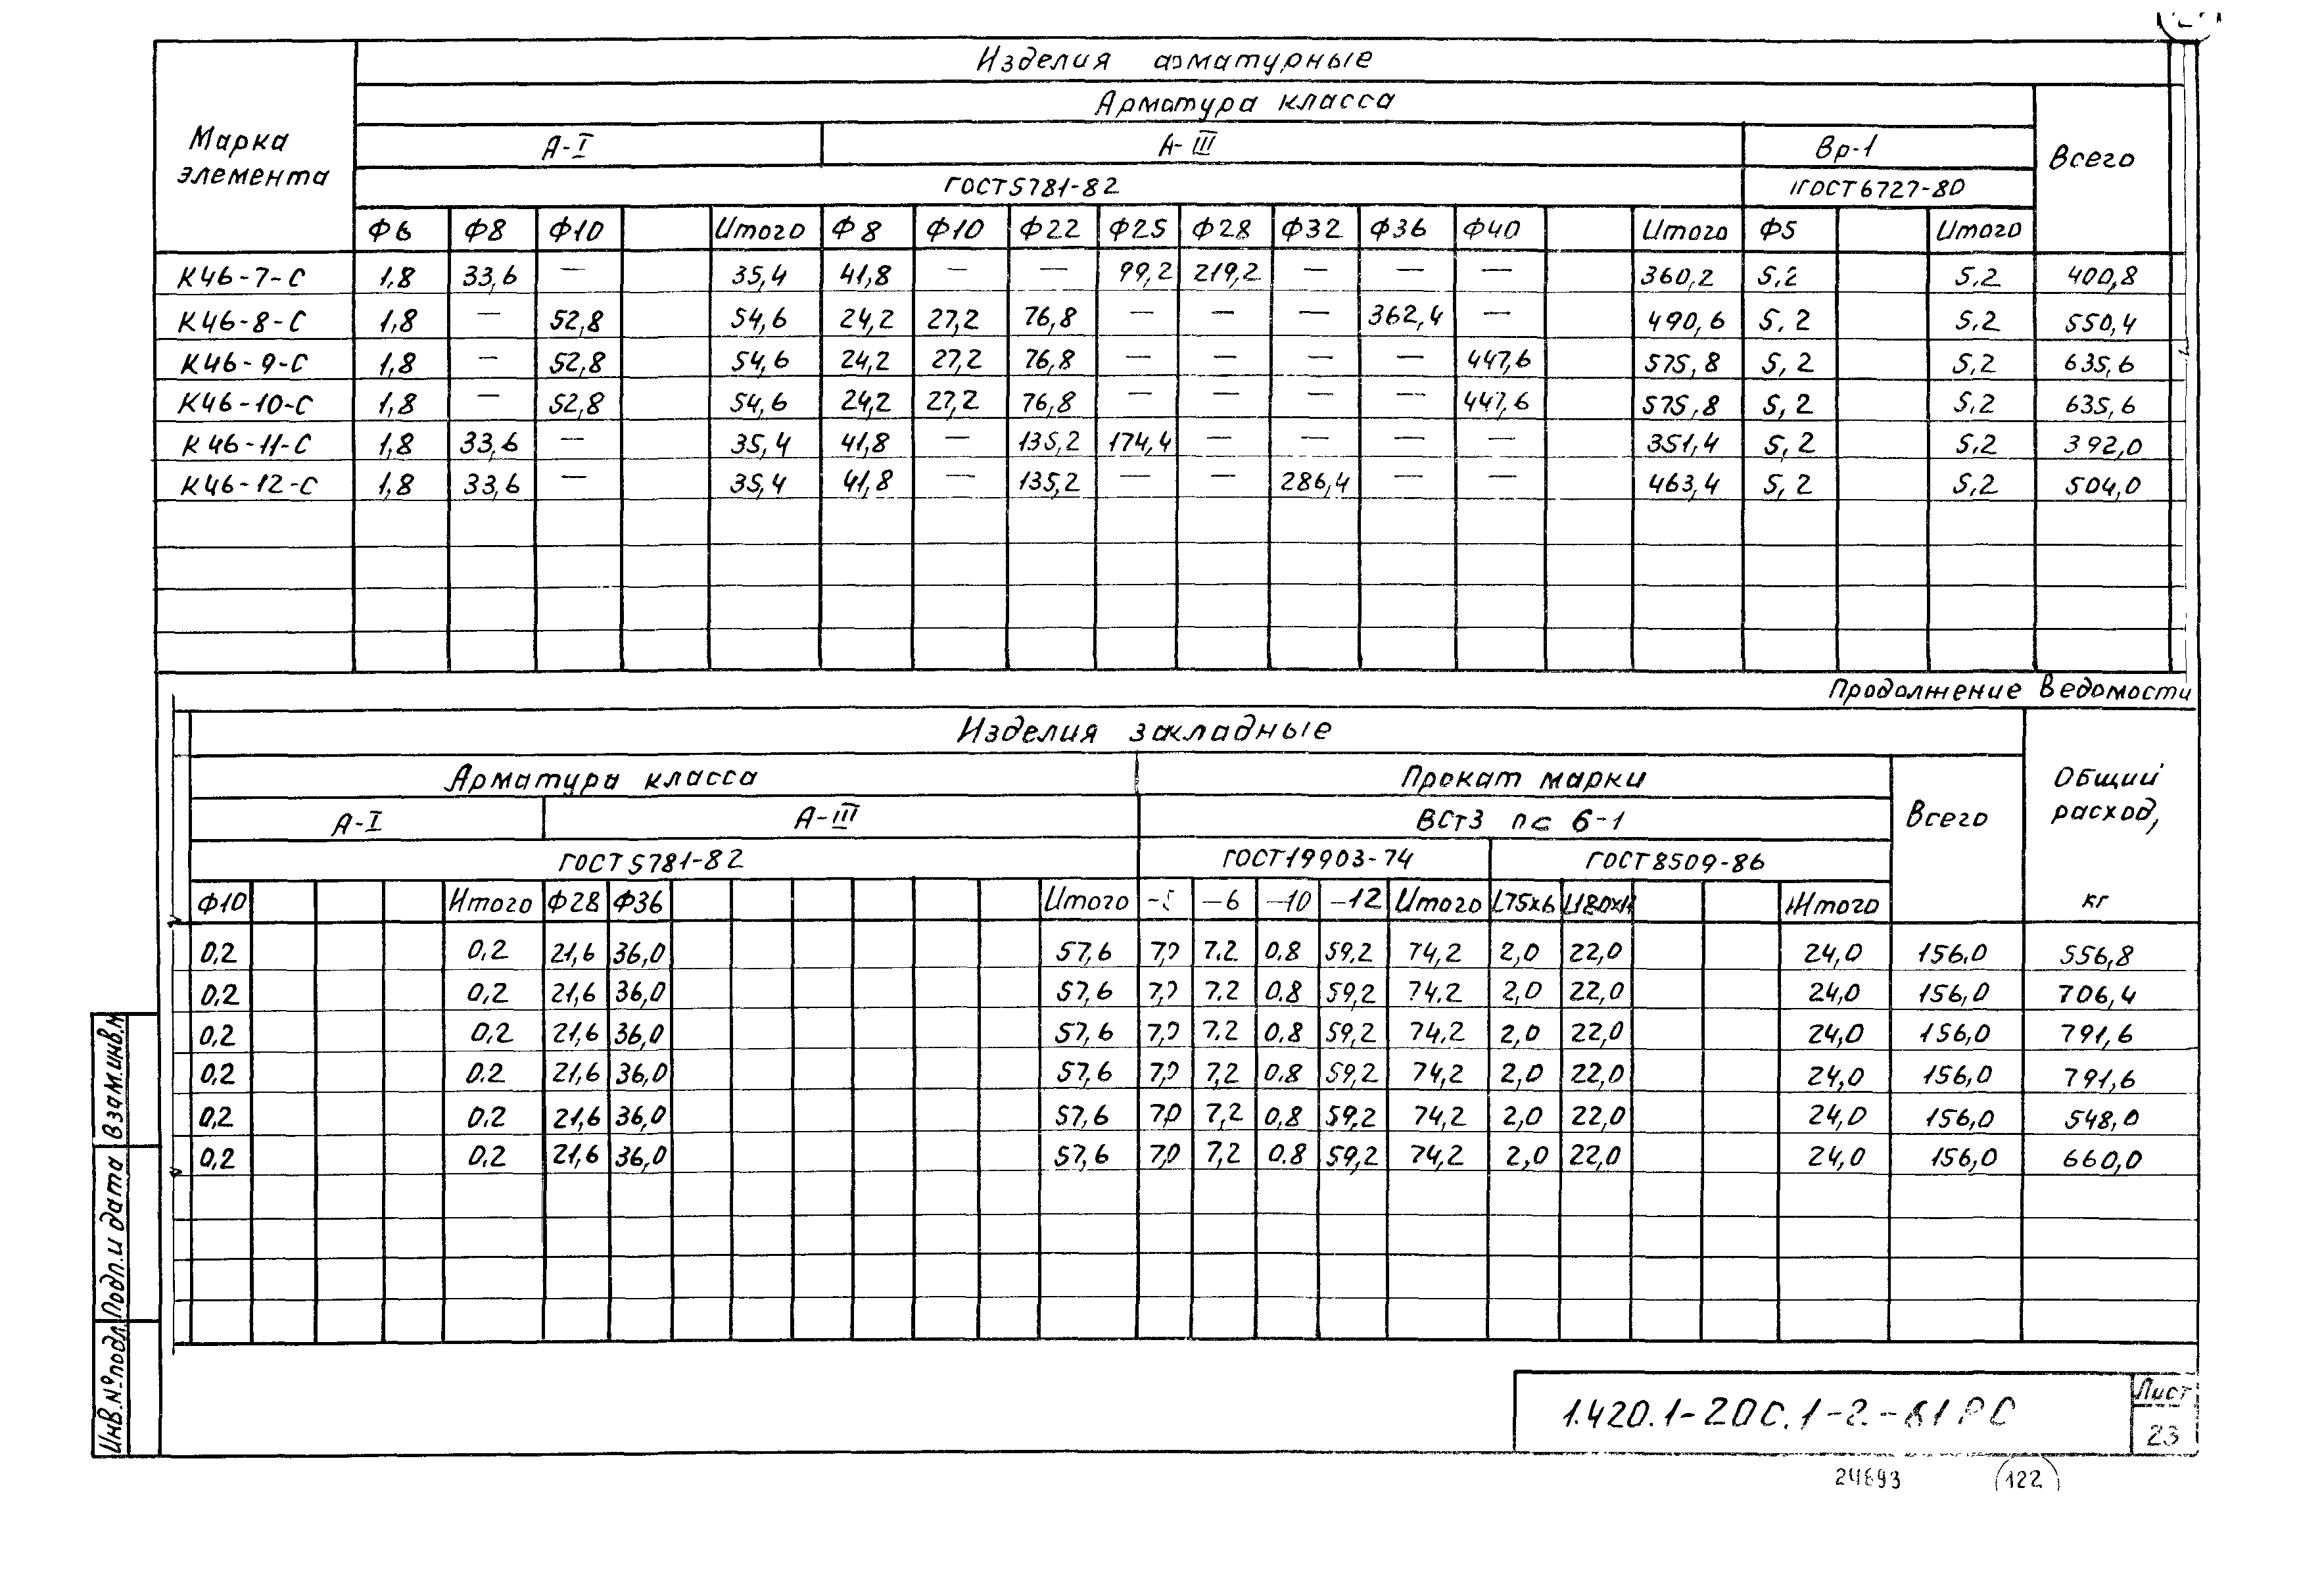 Изделия арматурные
Арматура класса
Марка элемента
А-I А-III Вр-1 Всего
ГОСТ 5781-82 ГОСТ 6727-80
Ф6 Ф8 Ф10 Итого Ф8 Ф10 Ф22 Ф25 Ф28 Ф32 Ф36 Ф40 Итого Ф5 Итого
К46-7-С 1,8 33,6 — 35,4 41,8 — — 99,2 219,2 — — — 360,2 5,2 5,2 400,8
К46-8-С 1,8 — 52,8 54,6 24,2 27,2 76,8 — — — 362,4 — 490,6 5,2 5,2 550,4
К46-9-С 1,8 — 52,8 54,6 24,2 27,2 76,8 — — — — 447,6 575,8 5,2 5,2 635,6
К46-10-С 1,8 — 52,8 54,6 24,2 27,2 76,8 — — — — 447,6 575,8 5,2 5,2 635,6
К46-11-С 1,8 33,6 — 35,4 41,8 — 135,2 174,4 — — — — 351,4 5,2 5,2 392,0
К46-12-С 1,8 33,6 — 35,4 41,8 — 135,2 — — 286,4 — — 463,4 5,2 5,2 504,0
Продолжение ведомости
Изделия закладные
Арматура класса Прокат марки Общий расход, кг
А-I А-III ВСт3 пс 6-1 Всего
ГОСТ 5781-82 ГОСТ 19903-74 ГОСТ 8509-86
Ф10 Итого Ф28 Ф36 Итого -6 -10 -12 Итого L75х6 Итого
0,2 0,2 21,6 36,0 57,6 7,0 7,2 0,8 59,2 74,2 2,0 22,0 24,0 156,0 556,8
0,2 0,2 21,6 36,0 57,6 7,0 7,2 0,8 59,2 74,2 2,0 22,0 24,0 156,0 706,4
0,2 0,2 21,6 36,0 57,6 7,0 7,2 0,8 59,2 74,2 2,0 22,0 24,0 156,0 791,6
0,2 0,2 21,6 36,0 57,6 7,0 7,2 0,8 59,2 74,2 2,0 22,0 24,0 156,0 791,6
0,2 0,2 21,6 36,0 57,6 7,0 7,2 0,8 59,2 74,2 2,0 22,0 24,0 156,0 548,0
0,2 0,2 21,6 36,0 57,6 7,0 7,2 0,8 59,2 74,2 2,0 22,0 24,0 156,0 660,0
Взам.инв.№
Подп.и дата
Инв.№ подл.
1.420.1-20С.1-2-61РС
Лист
23
24693 122